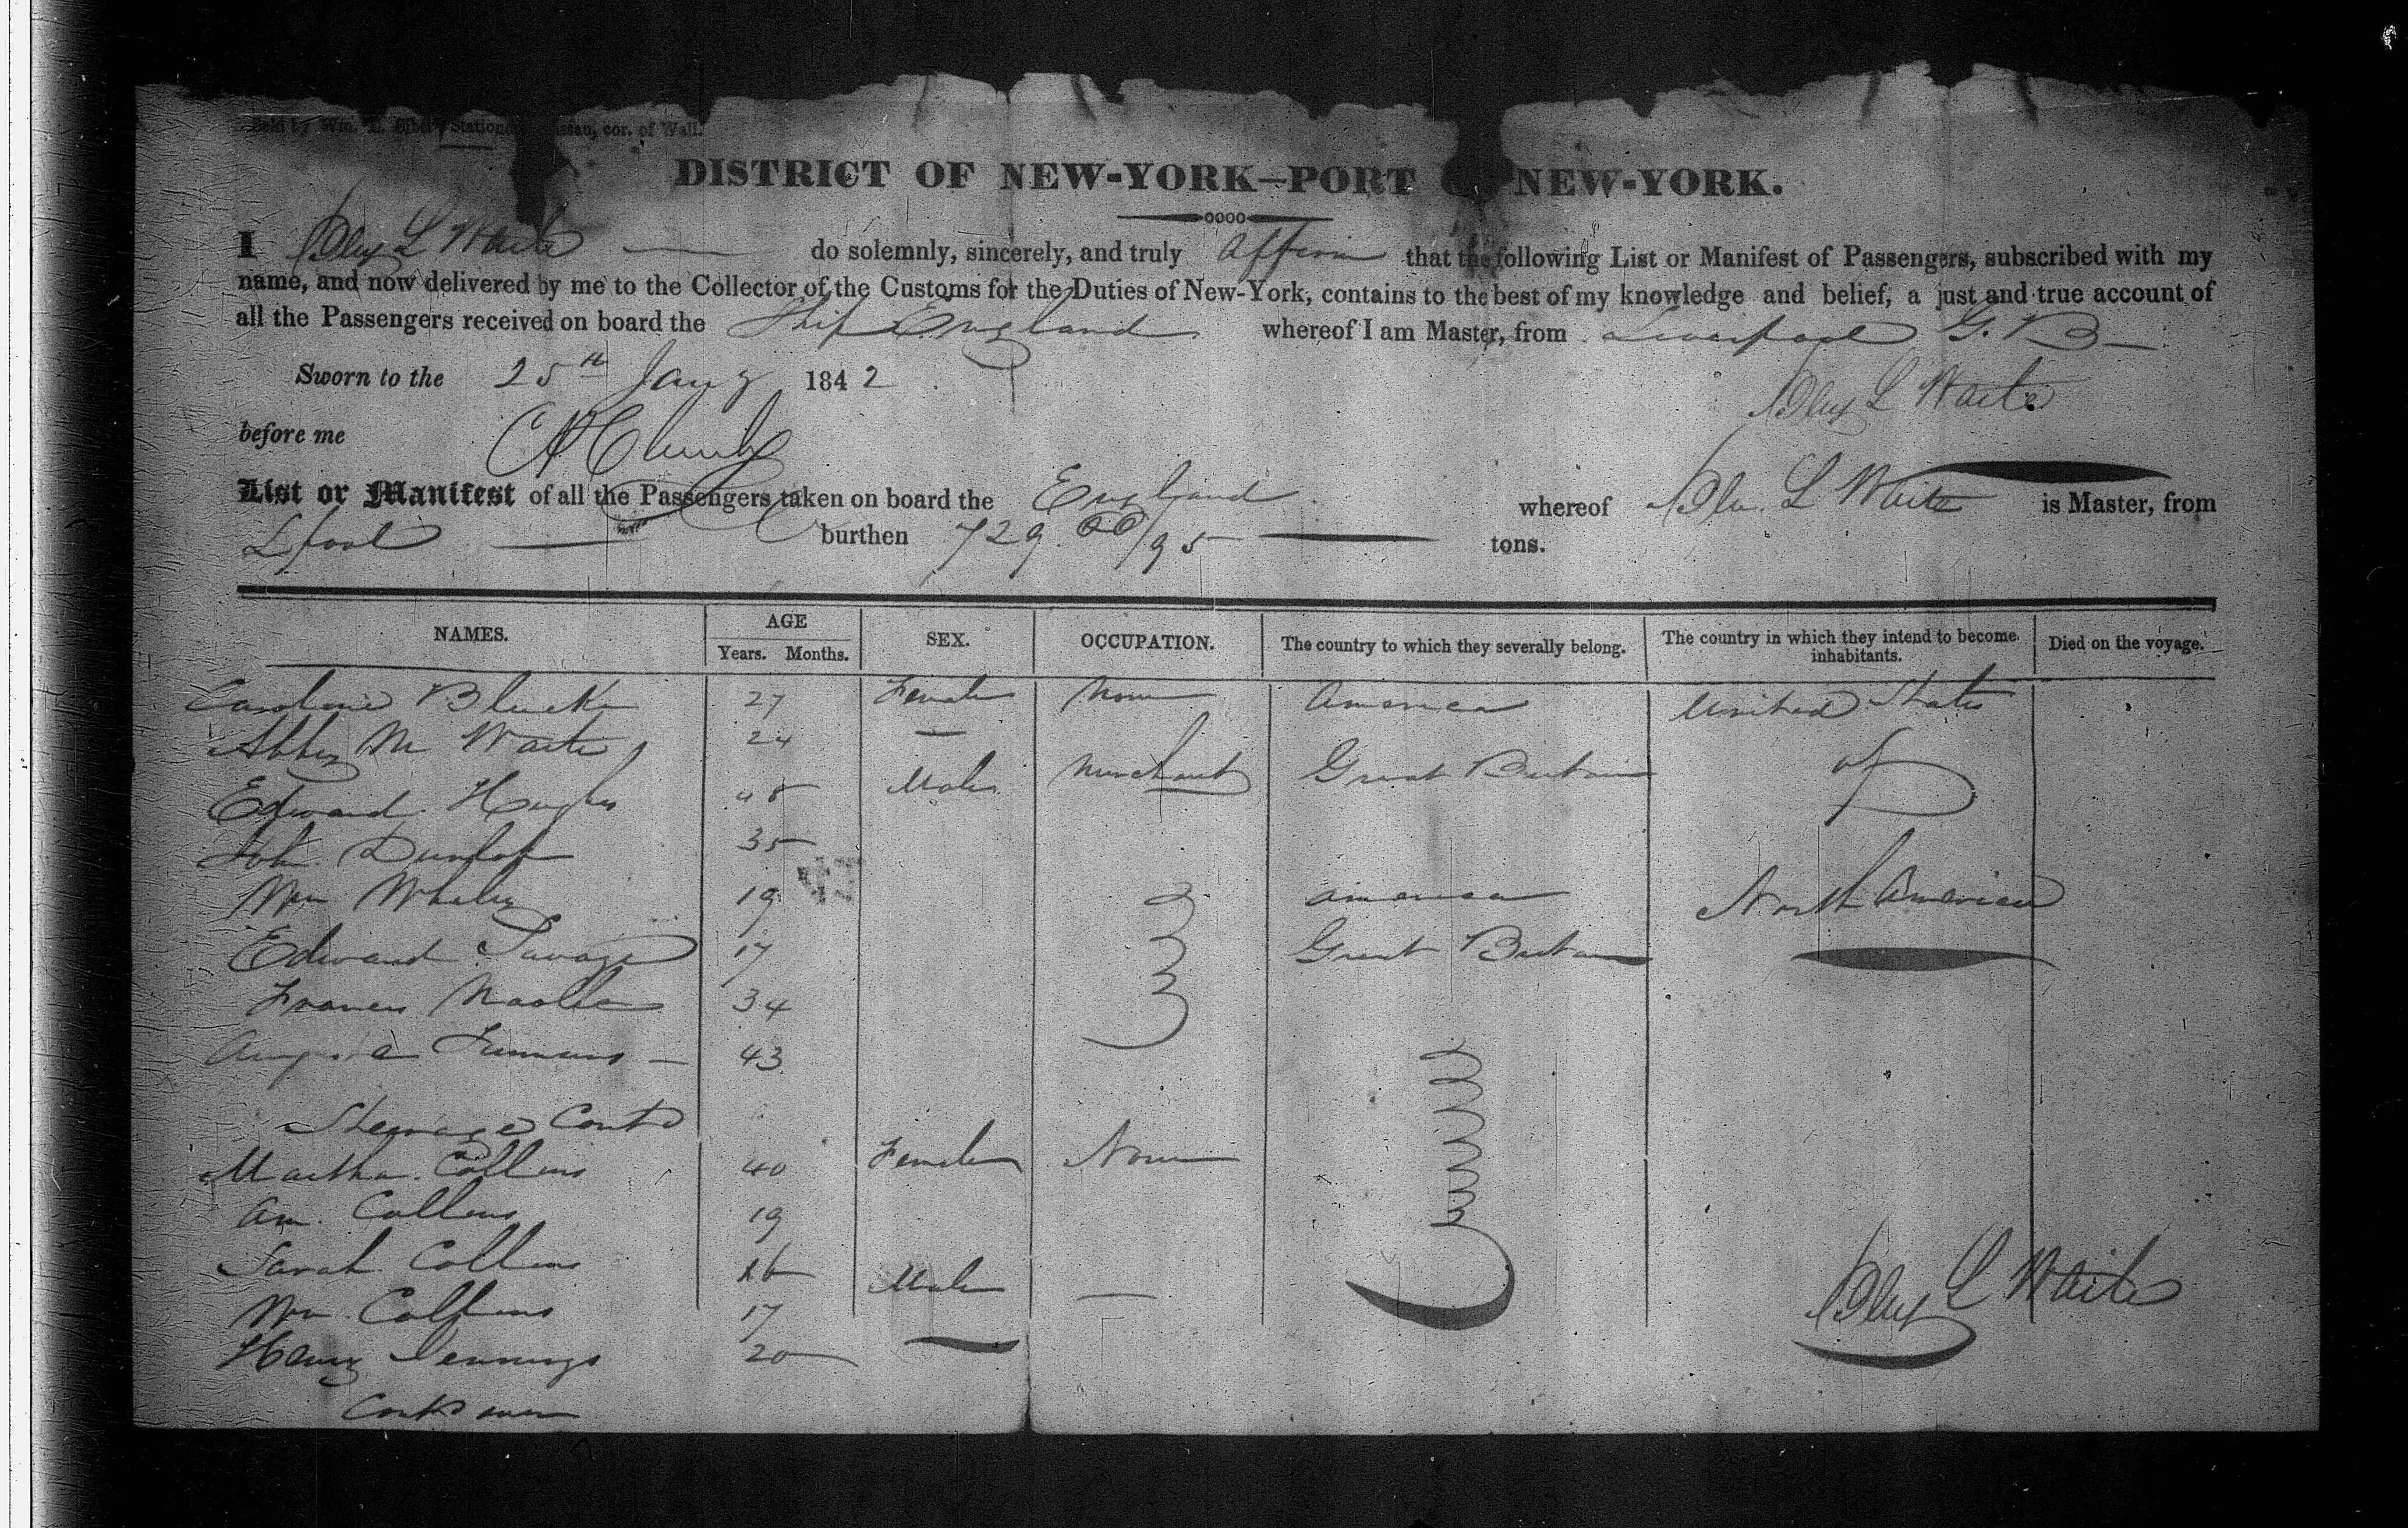 Sold by Wm. Stationer Nassau, cor. of Wall.
DISTRICT OF NEW-YORK—PORT NEW-YORK.
I Benj L Waite do solemnly, sincerely, and truly affirm that the following List or Manifest of Passengers, subscribed with my
name, and now delivered by me to the Collector of the Customs for the Duties of New-York, contains to the best of my knowledge and belief, a just and true account of
all the Passengers received on board the Ship England whereof I am Master, from Liverpool G. B
Sworn to the 25th Jany 1842
Benj L Waite
before me
List or Manifest of all the Passengers taken on board the England. whereof Benj. L Waite is Master, from
Lpool burthen 729 /95 tons.
NAMES. AGE Years. Months. SEX. OCCUPATION. The country to which they severally belong. The country in which they intend to become inhabitants. Died on the voyage.
Caroline 27 Female None America United States
Abby M Waite 24 —
Edward Hughes 45 Male Merchant Great Britain
John Dunlop 35
Wm Whaley 19 America North America
Edward Savage 17 Great Britain
Francis 34
43
Steerage Contd
Martha Collins 40 Female None
An. Collins 19
Sarah Collins 16
Wm Collins 17 Male —
Henry Jennings 20
Benj L Waite
Contd over